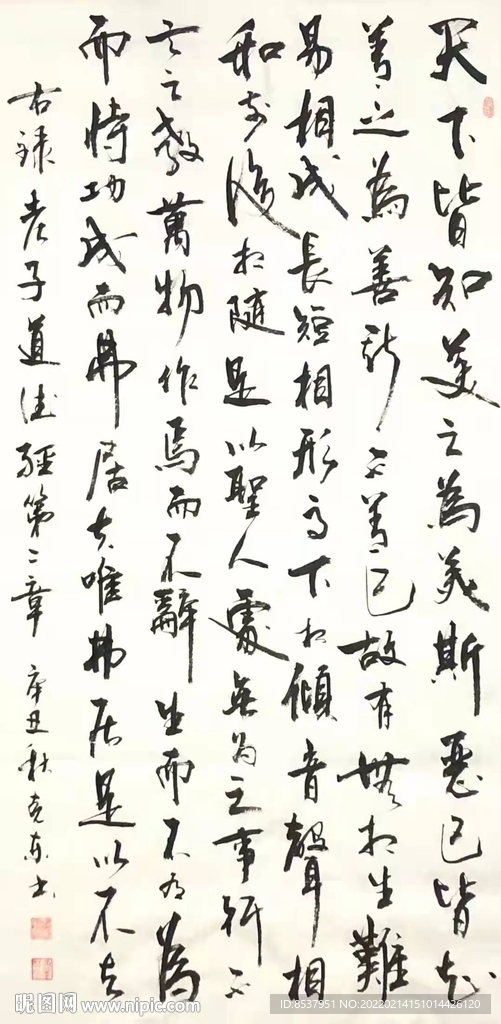 天下皆知美之為美斯惡已皆知
善之為善斯不善已故有無相生難
易相成長短相形高下相傾音聲相
和前後相隨是以聖人處無为之事行不
言之教萬物作焉而不辭生而不有為
而恃功成而弗居夫唯弗居是以不去
右録老子道德經第二章 辛丑秋克東書
昵图网 www.nipic.com
ID:8537951 NO:20220214151014426120